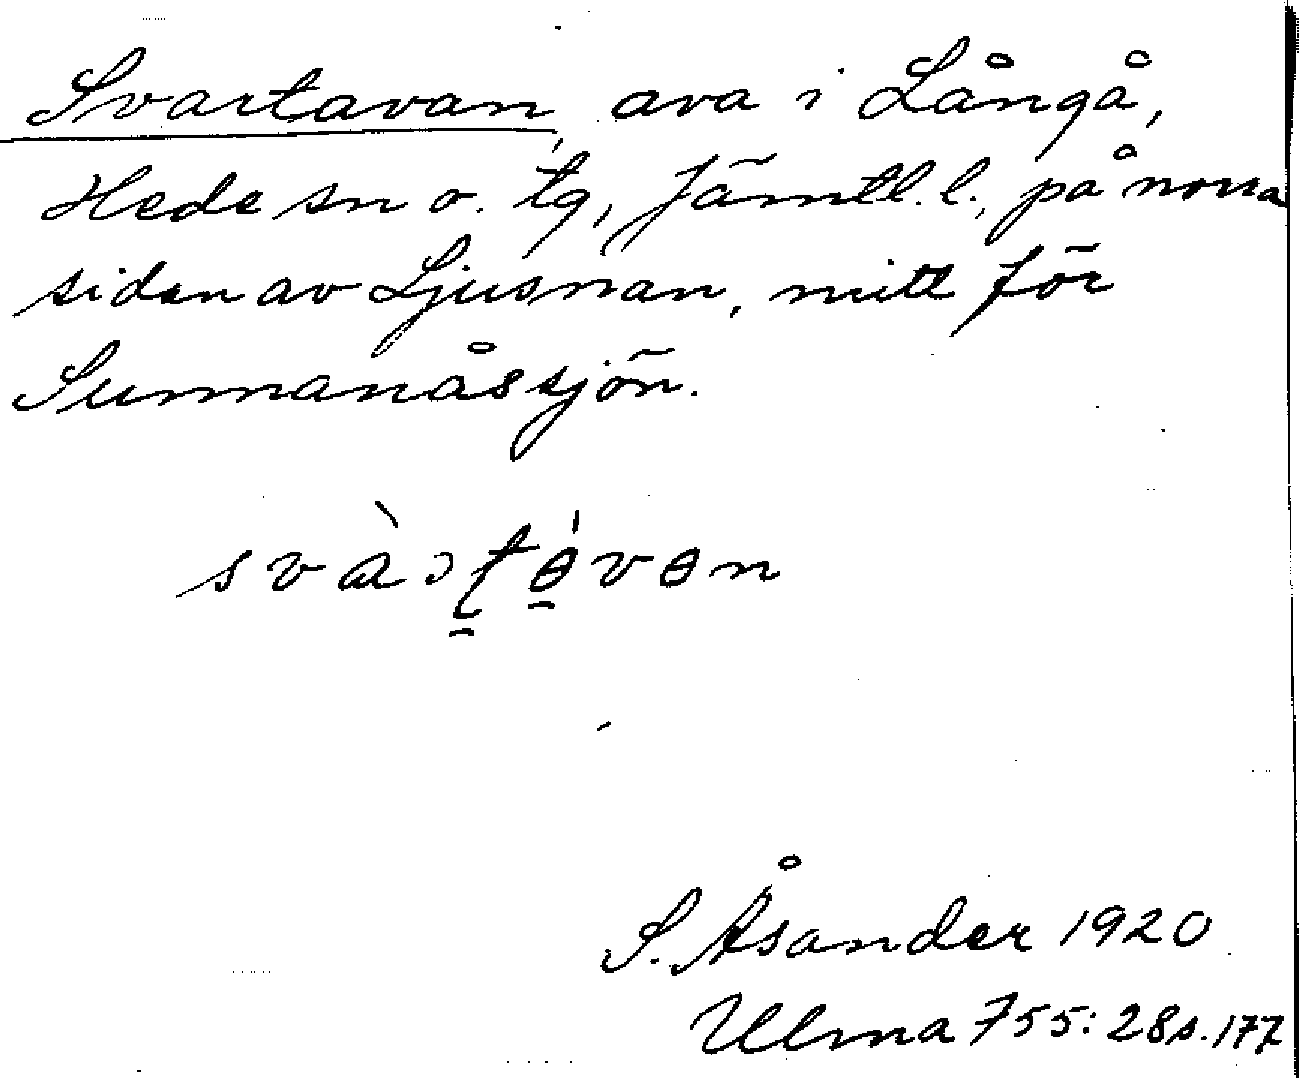 Svartavan, ava i Långå,
Hede sn o. tg, Jämtl. l., på norra
sidan av Ljusnan, mitt för
Sunnanåssjön.
S. Åsander 1920
Ulma 755: 28 s. 177